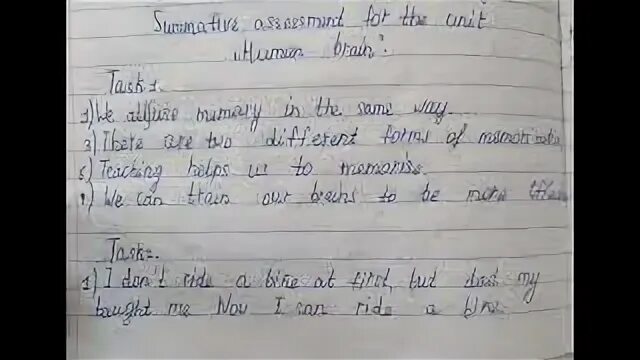 Summative assessment for the unit
"Human brain".
Task 1.
1) We memory in the same way.
3) There are two different forms of
5) Teaching helps us to memoriss.
) We can train our brains to be more
Task
1) I don't ride a bike at first, but my
me Now I can ride a